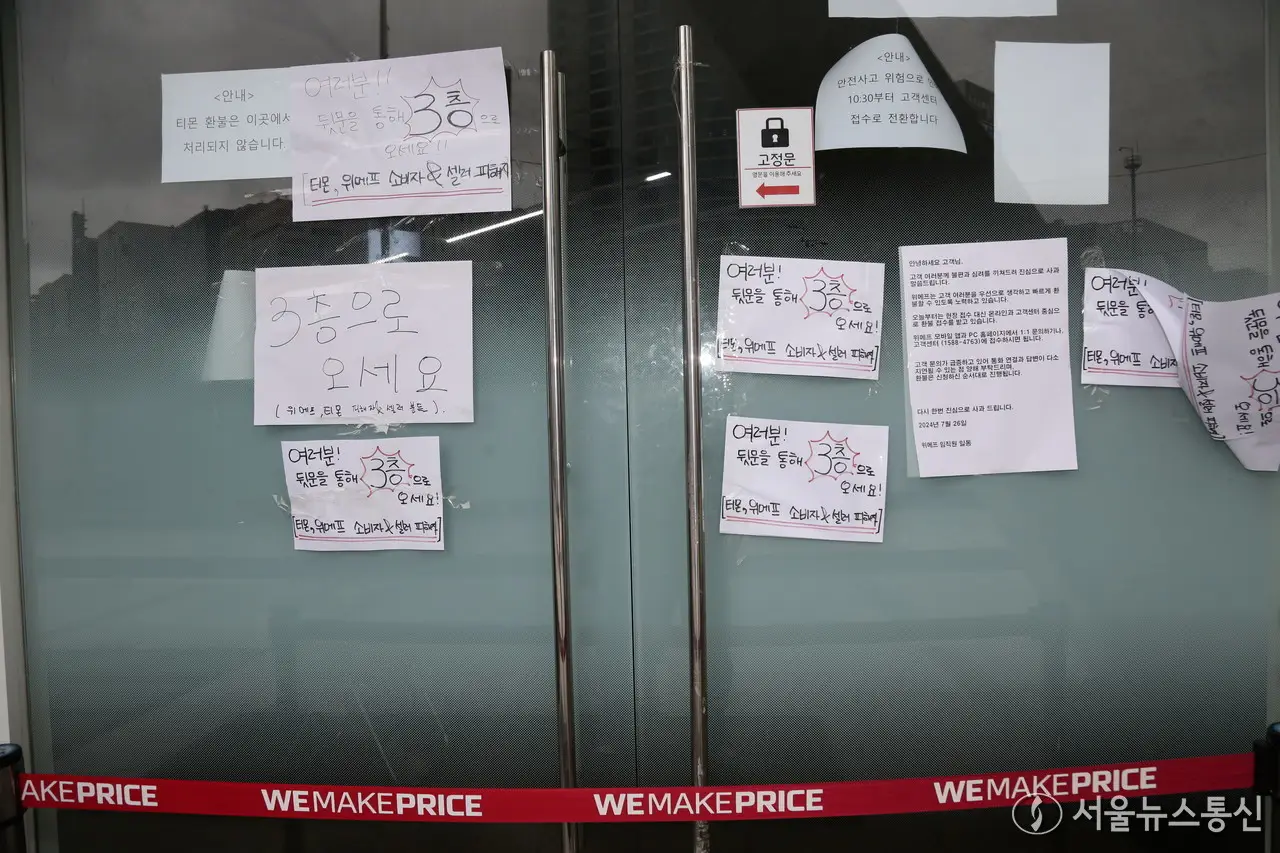 <안내>
티몬 환불은 이곳에서
처리되지 않습니다
여러분!!
뒷문을 통해 3층으로
오세요!!
[티몬, 위메프 소비자 & 셀러 피해자
3층으로
오세요
(위메프, 티몬 피해자 & 셀러 분들).
여러분!
뒷문을 통해 3층으로
오세요!
[티몬, 위메프 소비자 & 셀러 피해자]
고정문
옆문을 이용해 주세요
<안내>
안전사고 위험으로
10:30부터 고객센터
접수로 전환합니다
여러분!
뒷문을 통해 3층으로
오세요!
[티몬, 위메프 소비자 & 셀러 피해자]
여러분!
뒷문을 통해 3층으로
오세요!
[티몬, 위메프 소비자 & 셀러 피해자]
안녕하세요 고객님.
고객 여러분께 불편과 심려를 끼쳐드려 진심으로 사과
말씀드립니다.
위메프는 고객 여러분을 우선으로 생각하고 빠르게 환
불할 수 있도록 노력하고 있습니다.
오늘부터는 현장 접수 대신 온라인과 고객센터 중심으
로 환불 접수를 받고 있습니다.
위메프 모바일 앱과 PC 홈페이지에서 1:1 문의하거나,
고객센터 (1588-4763)에 접수하시면 됩니다.
고객 문의가 급증하고 있어 통화 연결과 답변이 다소
지연될 수 있는 점 양해 부탁드리며,
환불은 신청하신 순서대로 진행됩니다.
다시 한번 진심으로 사과 드립니다.
2024년 7월 26일
위메프 임직원 일동
여러분!!
뒷문을 통
[티몬, 위메프 소비자
AKEPRICE
WEMAKEPRICE
WEMAKEPRICE
WEMAKEPRICE
서울뉴스통신